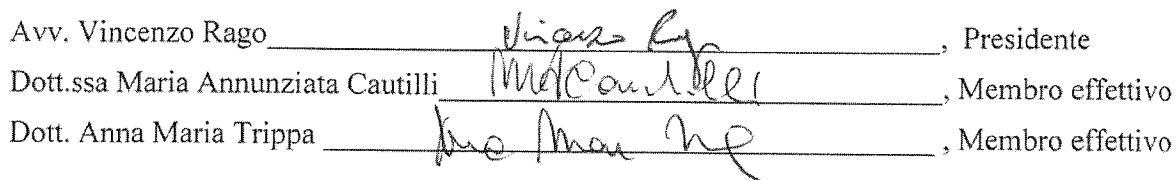 Avv. Vincenzo Rago Vincenzo Rago, Presidente
Dott.ssa Maria Annunziata Cautilli MACautilli, Membro effettivo
Dott. Anna Maria Trippa Anna Maria, Membro effettivo